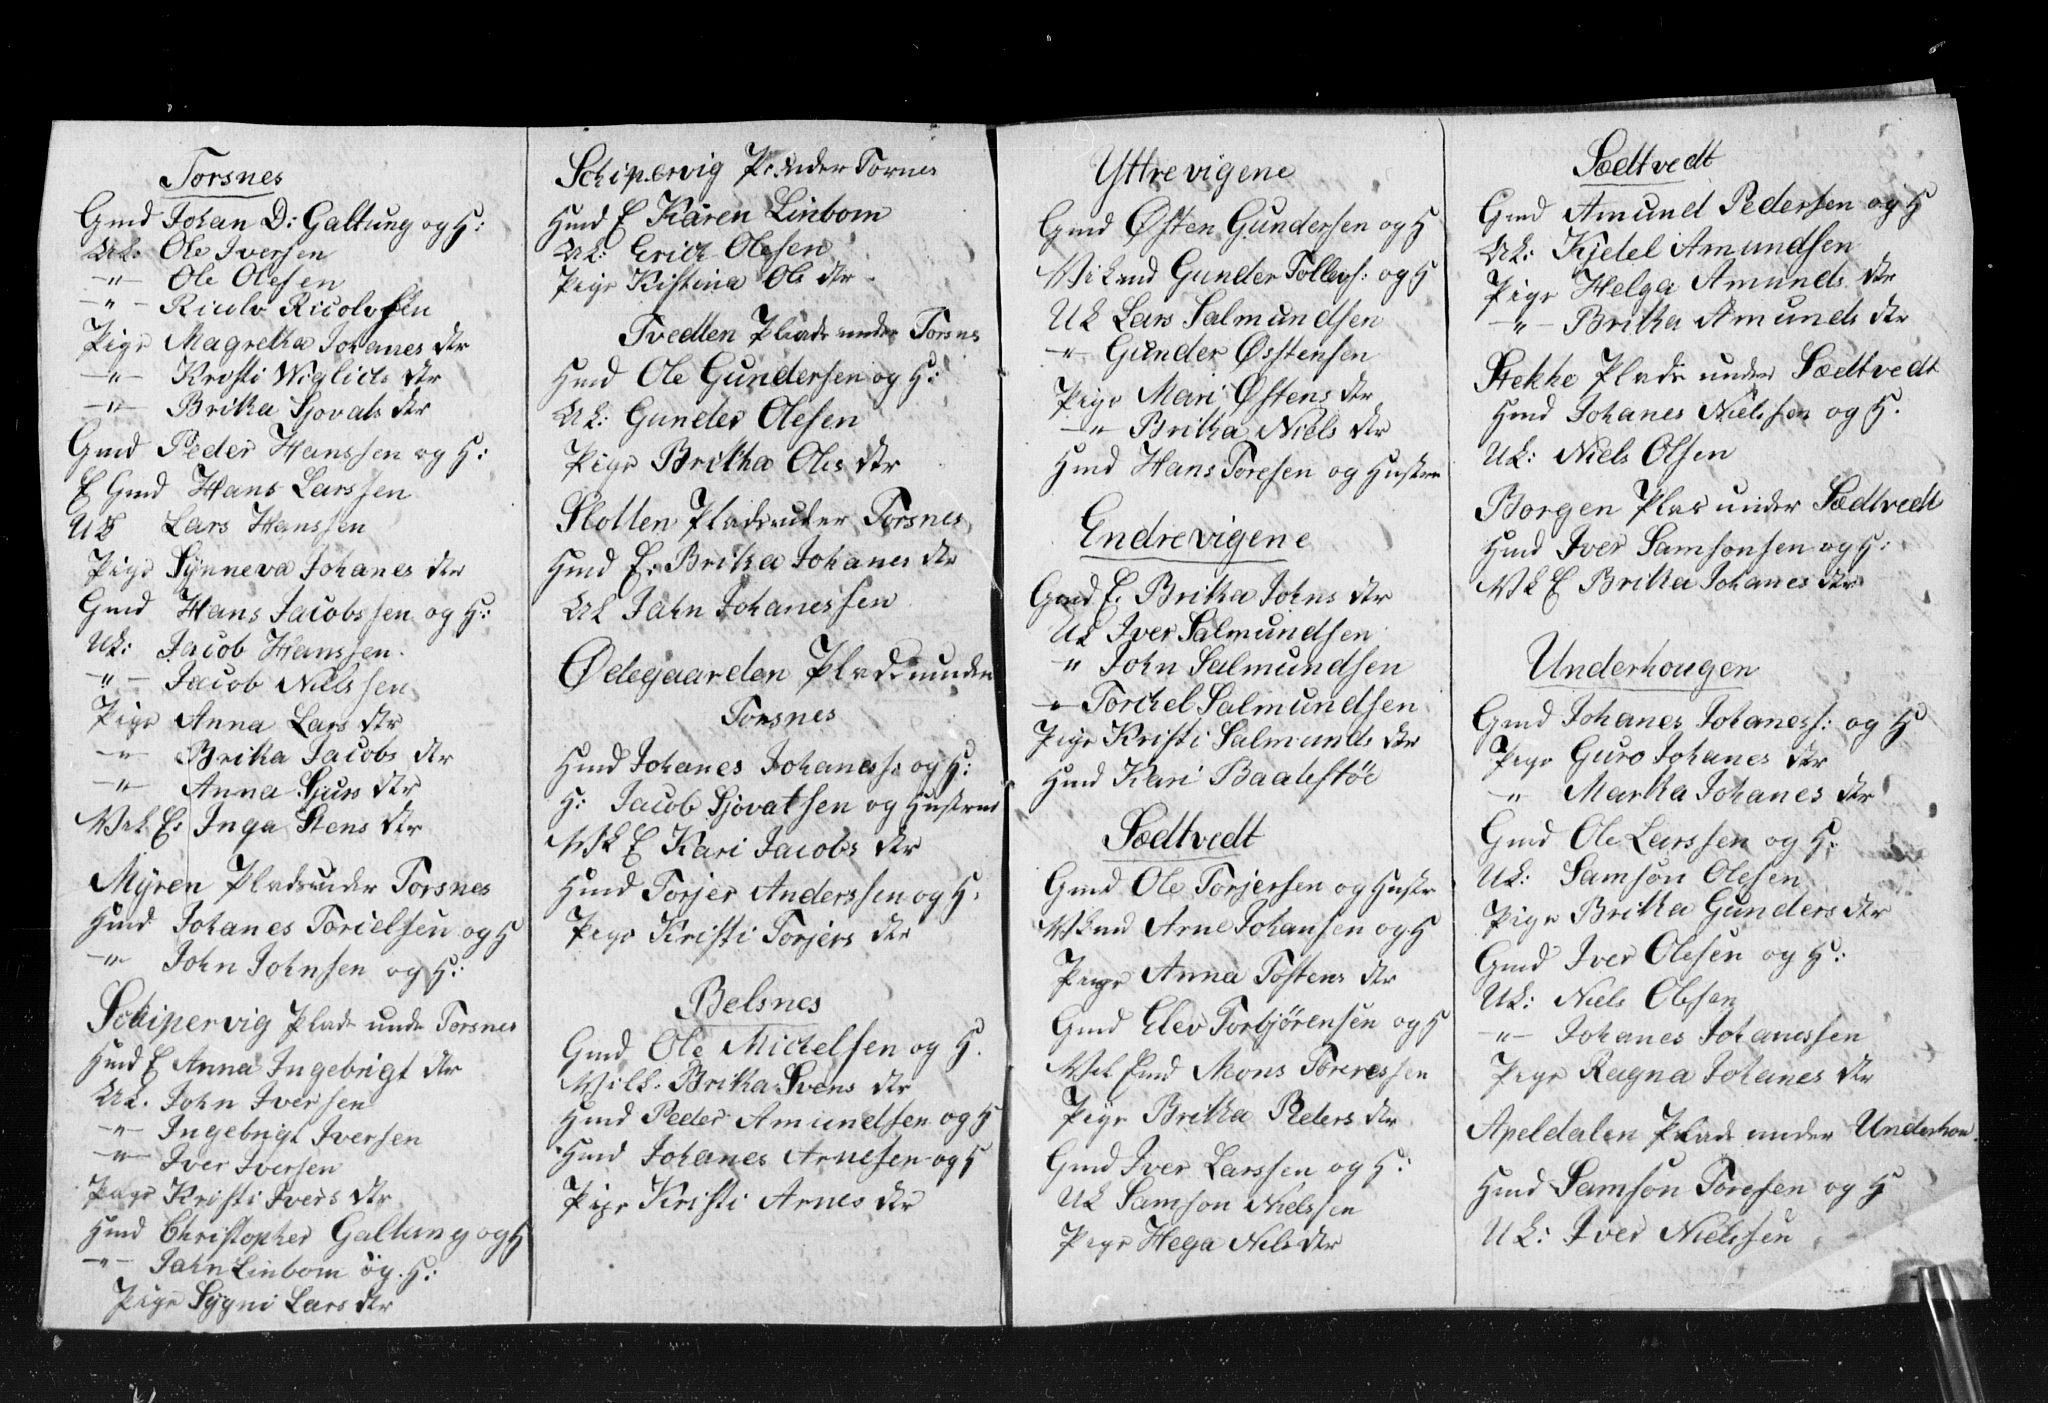 Torsnes
Gmd Johan D: Galtung og H:
UK. Ole Iversen
-"- Ole Olesen
-"- Ricolv Ricolvsen
Pige Magretha Johanes dtr
-"- Kristi Wiglids dtr
-"- Britha Sjovats dtr
Gmd Peder Hanssen og H:
E Gmd Hans Larssen
UK Lars Hanssen
Pige Synneva Johanes dtr
Gmd Hans Jacobssen og H:
UK: Jacob Hanssen.
-"- Jacob Nielssen
Pige Anna Lars dtr
-"- Britha Jacobs dtr
-"- Anna Sjurs dtr
Vek E: Inga Stens dtr
Myren Pladsunder Torsnes
Hmd Johanes Torielsen og H
-"- John Johnsen og H:
Schipervig Plads unde Torsnes
Hmd E Anna Ingebrigt dtr
UK. John Iversen
-"- Ingebrigt Iversen
-"- Iver Iversen
Pige Kristi Ivers dtr
Hmd Christopher Galtung og H
-"- Jahn Linbom og. H:
Pige Sygni Lars dtr
Schipervig Pl under Tornes
Hmd E Karen Linbom
UK: Erich Olesen
Pige Kistina Ols dtr
Tvedten Plads under Torsnes
Hmd Ole Gundersen og H:
UK: Gunder Olesen
Pige Britha Oles dtr
Slotten Pladsunder Torsnes
Hmd E. Britha Johanes dtr
UK Jahn Johanessen
Ødegaarden Pladsunder
Torsnes
Hmd Johanes Johaness: og H:
H: Jacob Sjovatsen og Hustrue
Vk E Kari Jacobs dtr
Hmd Torjer Anderssen og H.
Pige Kristi Torjers dtr
Belsnes
Gmd Ole Michelsen og H.
Vilk. Britha Svens dtr
Hmd Peder Amundsen og H
Hmd Johanes Arnesen og H
Pige Kristi Arnes dtr
Yttrevigene
Gmd Østen Gundersen og H
Vikmd Gunder Tollevs: og H
UK Lars Salmundsen
-"- Gunder Østensen
Pige Mari Østens dtr
-"- Britha Niels dtr
Hmd Hans Toresen og Hustru
Endrevigene
Gmd E. Britha Johns dtr
UK Iver Salmundsen
" John Salmundsen
-"- Torchel Salmundsen
Pige Kristi Salmunds dtr
Hmd Kari Baadstöe
Sædtvedt
Gmd Ole Torjersen og Hustr
Vkmd Arne Johansen og H
Pige Anna Tostens dtr
Gmd Elev Torbjörensen og H
Vek Emd Mons Toreressen
Pige Britha Peders dtr
Gmd Iver Larssen og H:
UK Samson Nielssen
Pige Hega Nils dtr
Sædtvedt
Gmd Amund Pedersen og H
UK: Kjetel Amundsen
Pige Helga Amunds dtr
-"- Britha Amunds dtr
Stekke Plads under Sædtvedt
Hmd Johanes Nielssen og H.
UK: Niels Olsen
Borgen Plas under Sædtvedt
Hmd Iver Samsonsen og H:
Vk E Britha Johanes dtr
Underhougen
Gmd Johanes Johaness: og H
Pige Guro Johanes dtr
" Martha Johanes dtr
Gmd Ole Larssen og H.
UK: Samson Olesen
Pige Britha Gunders dtr
Gmd Iver Olesen og H:
UK: Niels Olesen
-"- Johanes Johanessen
Pige Ragna Johanes dtr
Apeldalen Plads under Underhou.
Hmd Samson Toresen og H
UK: Iver Nielssen